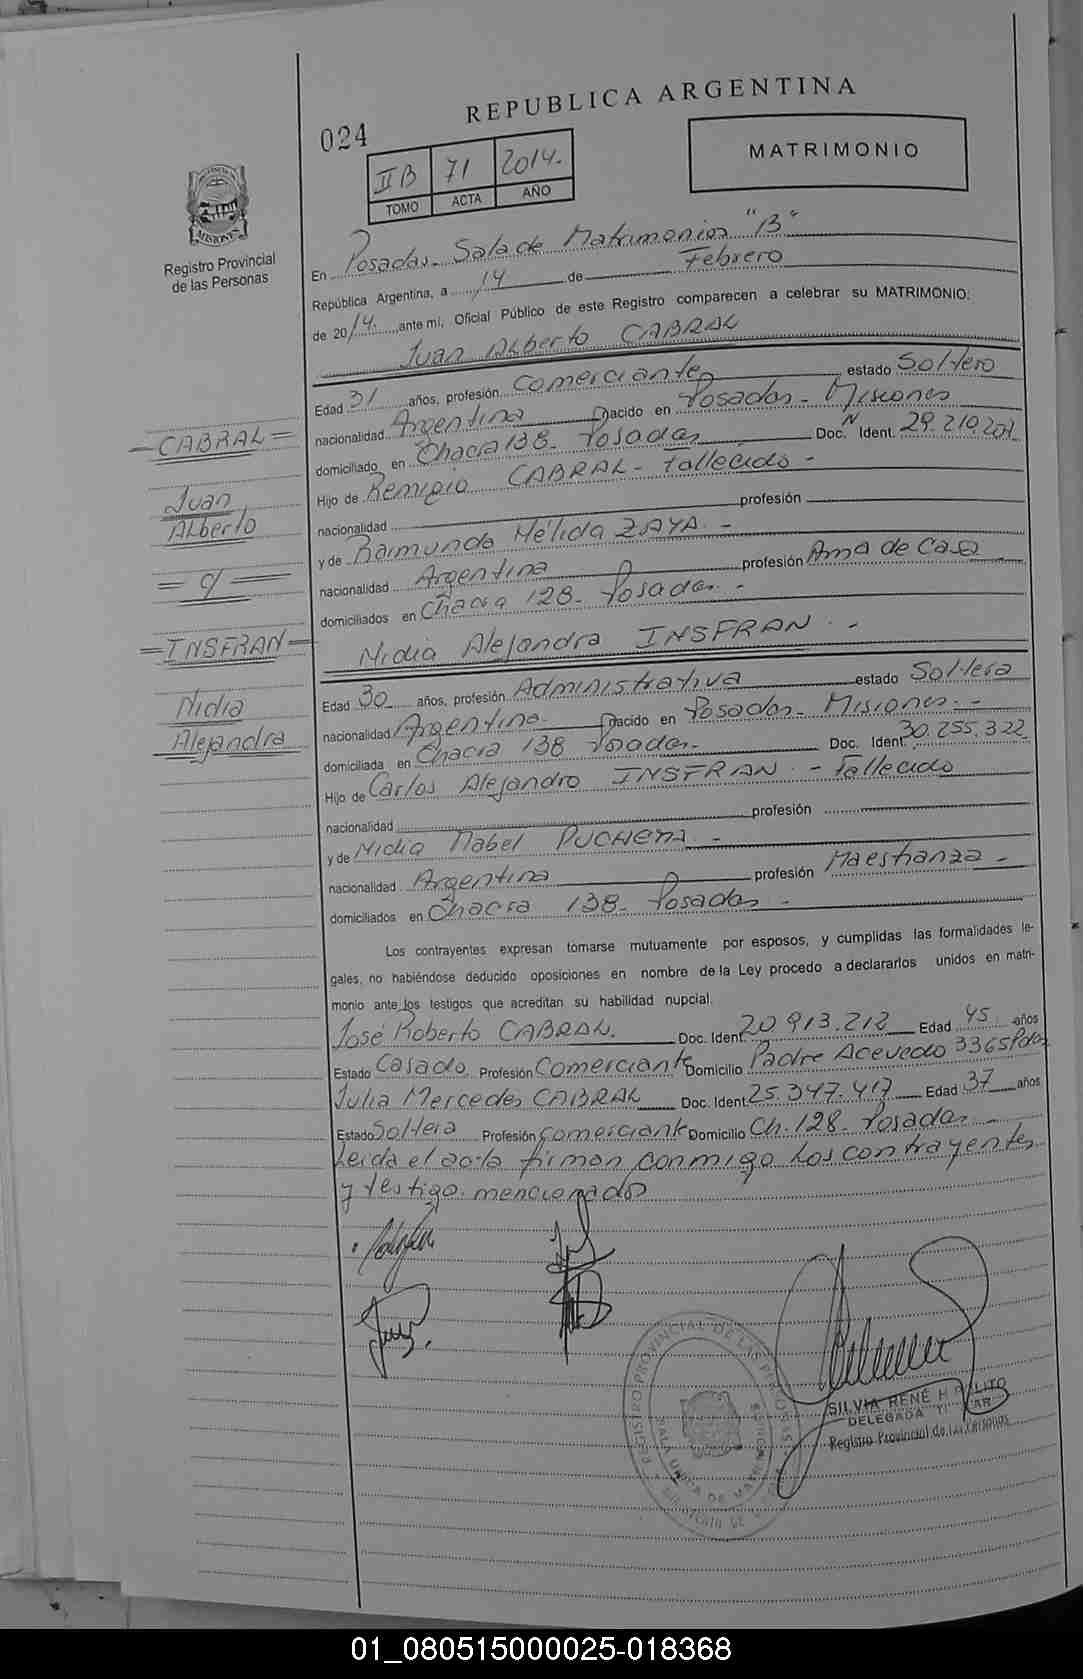 REPUBLICA ARGENTINA
024
MATRIMONIO
II B 71 2014.-
TOMO ACTA AÑO
MISIONES
Registro Provincial
de las Personas
En Posadas- Sala de Matrimonios "B"
República Argentina, a 14 de Febrero
de 2014. ante mi, Oficial Público de este Registro comparecen a celebrar su MATRIMONIO:
Juan Alberto CABRAL
Edad 31 años, profesión Comerciante estado Soltero
nacionalidad Argentina nacido en Posadas- Misiones
domiciliado en Chacra 138- Posadas Doc. N Ident. 29.210.207
Hijo de Remigio CABRAL- Fallecido -
nacionalidad profesión
y de Raimunda Hélida ZAYA. -
nacionalidad Argentina profesión Ama de Casa
domiciliados en Chacra 128- Posadas. -
Nidia Alejandra INSFRAN. -
Edad 30 años, profesión Administrativa estado Soltera
nacionalidad Argentina- nacido en Posadas- Misiones.-
domiciliada en Chacra 138 Posadas- Doc. Ident. 30.255.322
Hijo de Carlos Alejandro INSFRAN. - Fallecido
nacionalidad profesión
y de Nidia Mabel -
nacionalidad Argentina profesión Maestranza -
domiciliados en Chacra 138- Posadas -
-CABRAL=
Juan
Alberto
= c/ =
=INSFRAN=
Nidia
Alejandra
Los contrayentes expresan tomarse mutuamente por esposos, y cumplidas las formalidades le-
gales, no habiéndose deducido oposiciones en nombre de la Ley procedo a declararlos unidos en matri-
monio ante los testigos que acreditan su habilidad nupcial.
José Roberto CABRAL. Doc. Ident. 20.913.212 Edad 45 años
Estado Casado Profesión Comerciante Domicilio Padre Acevedo 3365 Pdas
Julia Mercedes CABRAL Doc. Ident. 25.347.417 Edad 37 años
Estado Soltera Profesión Comerciante Domicilio Ch. 128- Posadas -
Leida el acta firman conmigo Los contrayentes
y testigo. mencionados
REGISTRO PROVINCIAL DE LAS PERSONAS
SALA UNICA DE
SILVIA RENÉ HIPOLITO
DELEGADA TITULAR
Registro Provincial de las Personas
01_080515000025-018368